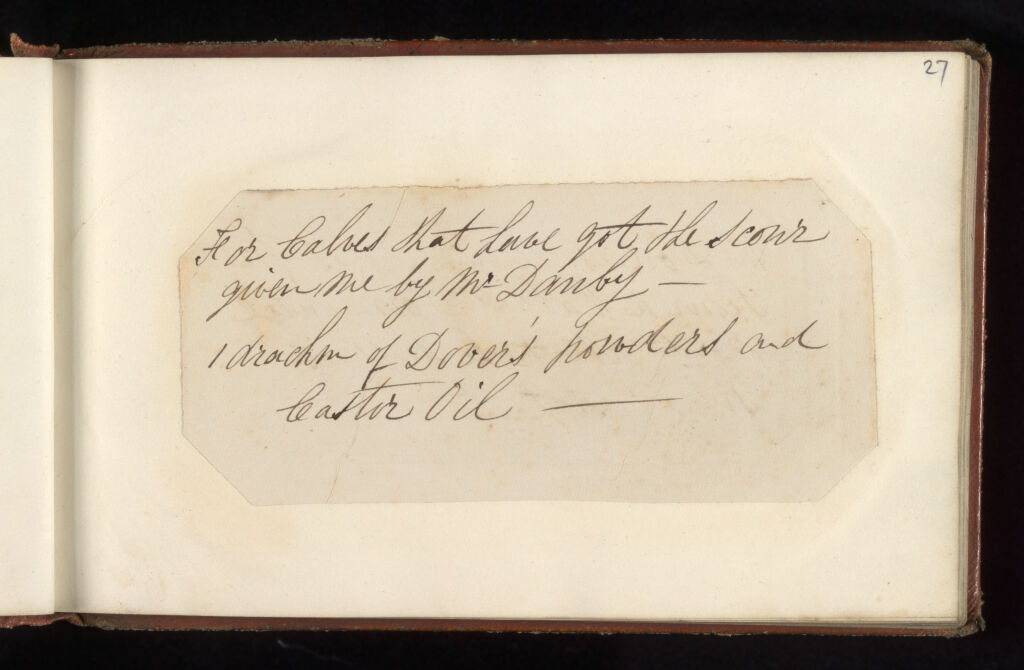 27
For Calves that have got the scour
given me by Mr Danby —
1 drachm of Dover's powders and
Castor Oil —